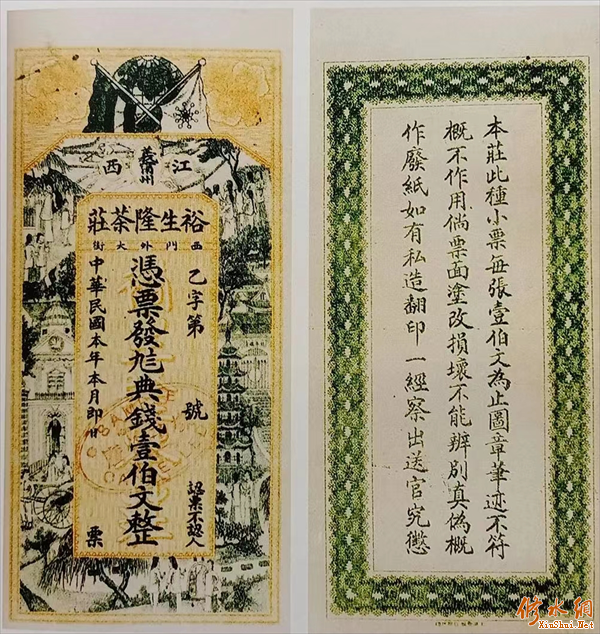 江義甯州西
裕生隆茶莊
西門外大街
乙字第 號
認票不認人
憑票發典錢壹伯文整
中華民國本年本月即日 票
本莊此種小票每張壹伯文為止圖章筆迹不符
概不作用倘票面塗改損壞不能辨別真偽概
作廢紙如有私造翻印一經察出送官究懲
修水网
XiuShui.Net